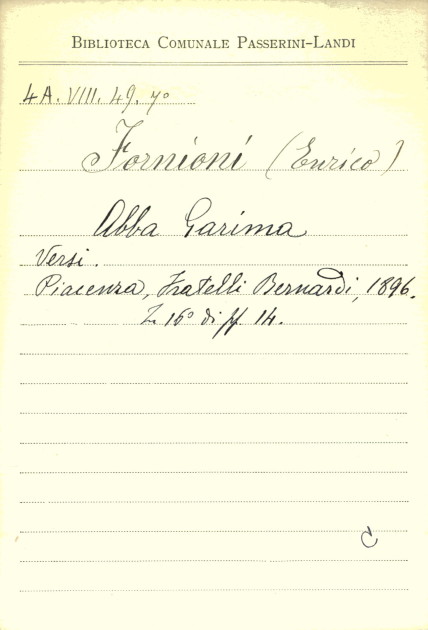 BIBLIOTECA COMUNALE PASSERINI-LANDI
4A. VIII. 49. 7º
Fornioni (Enrico)
Abba Garima
Versi.
Piacenza, Fratelli Bernardi, 1896.
In 16º di pp. 14.
C